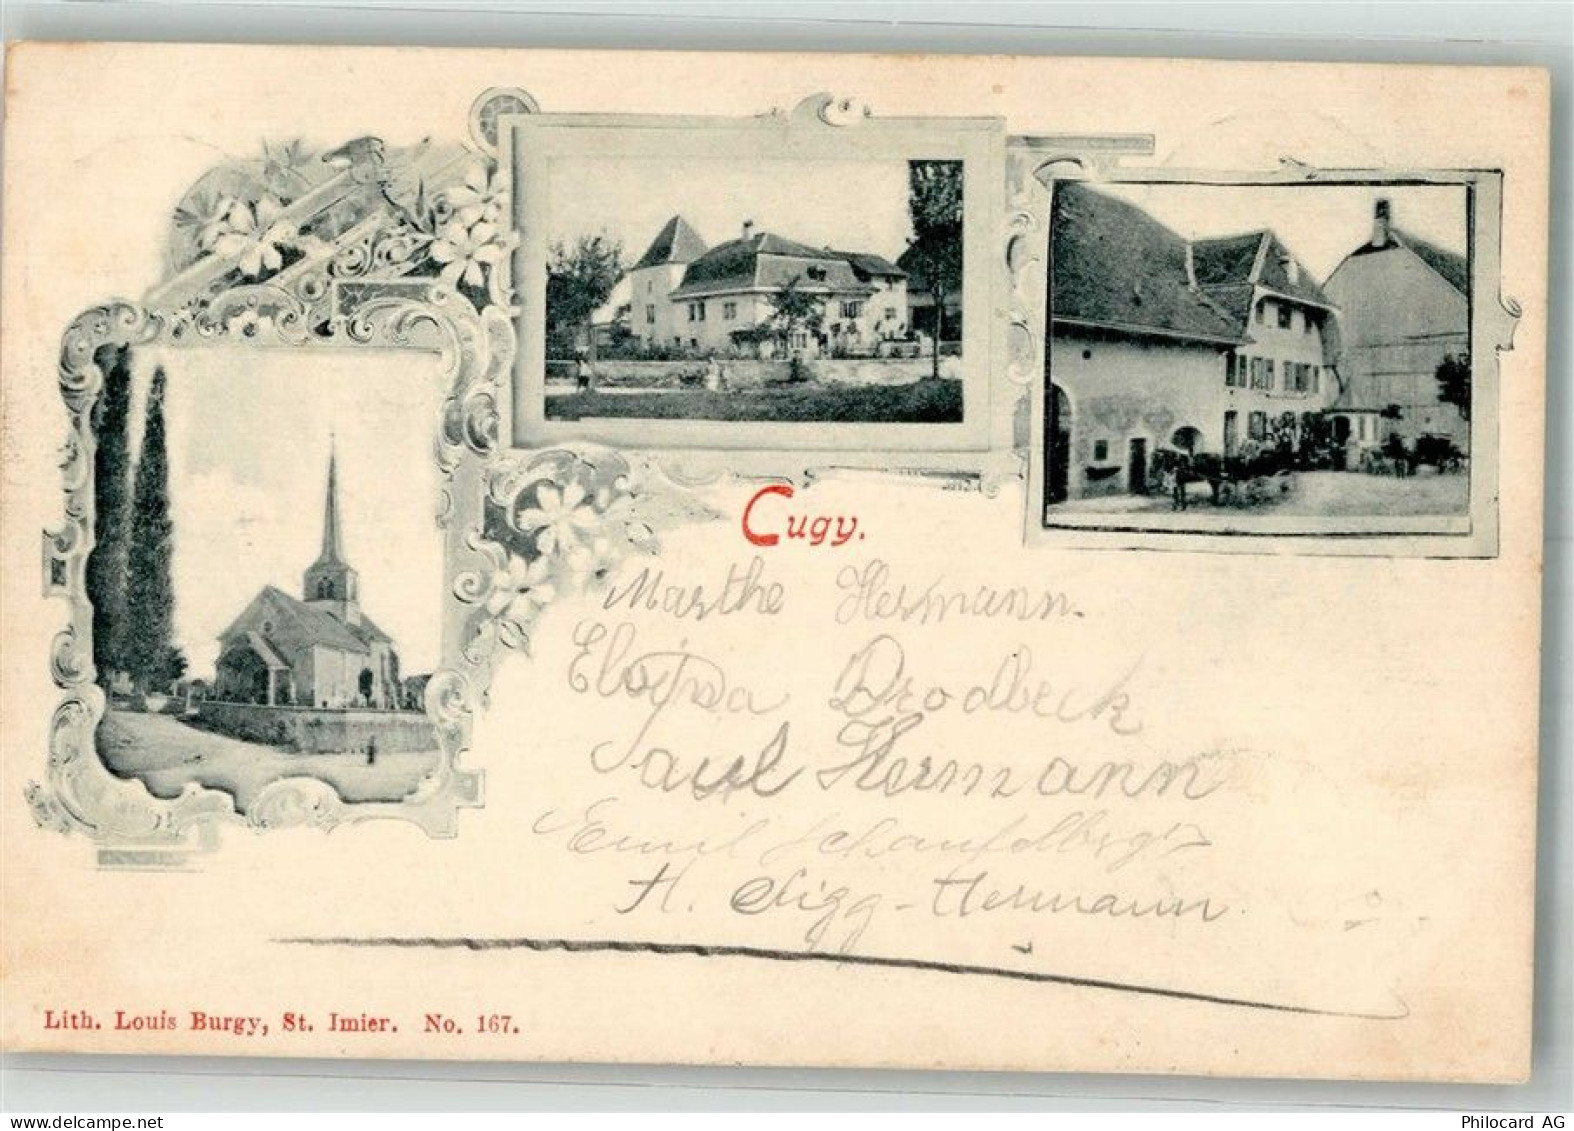 Cugy.
Marthe Hermann.
Eloïsa Brodbeck
Paul Hermann
Emil Schaufelberger
H. Sigg-Hermann
Lith. Louis Burgy, St. Imier. No. 167.
Philocard AG